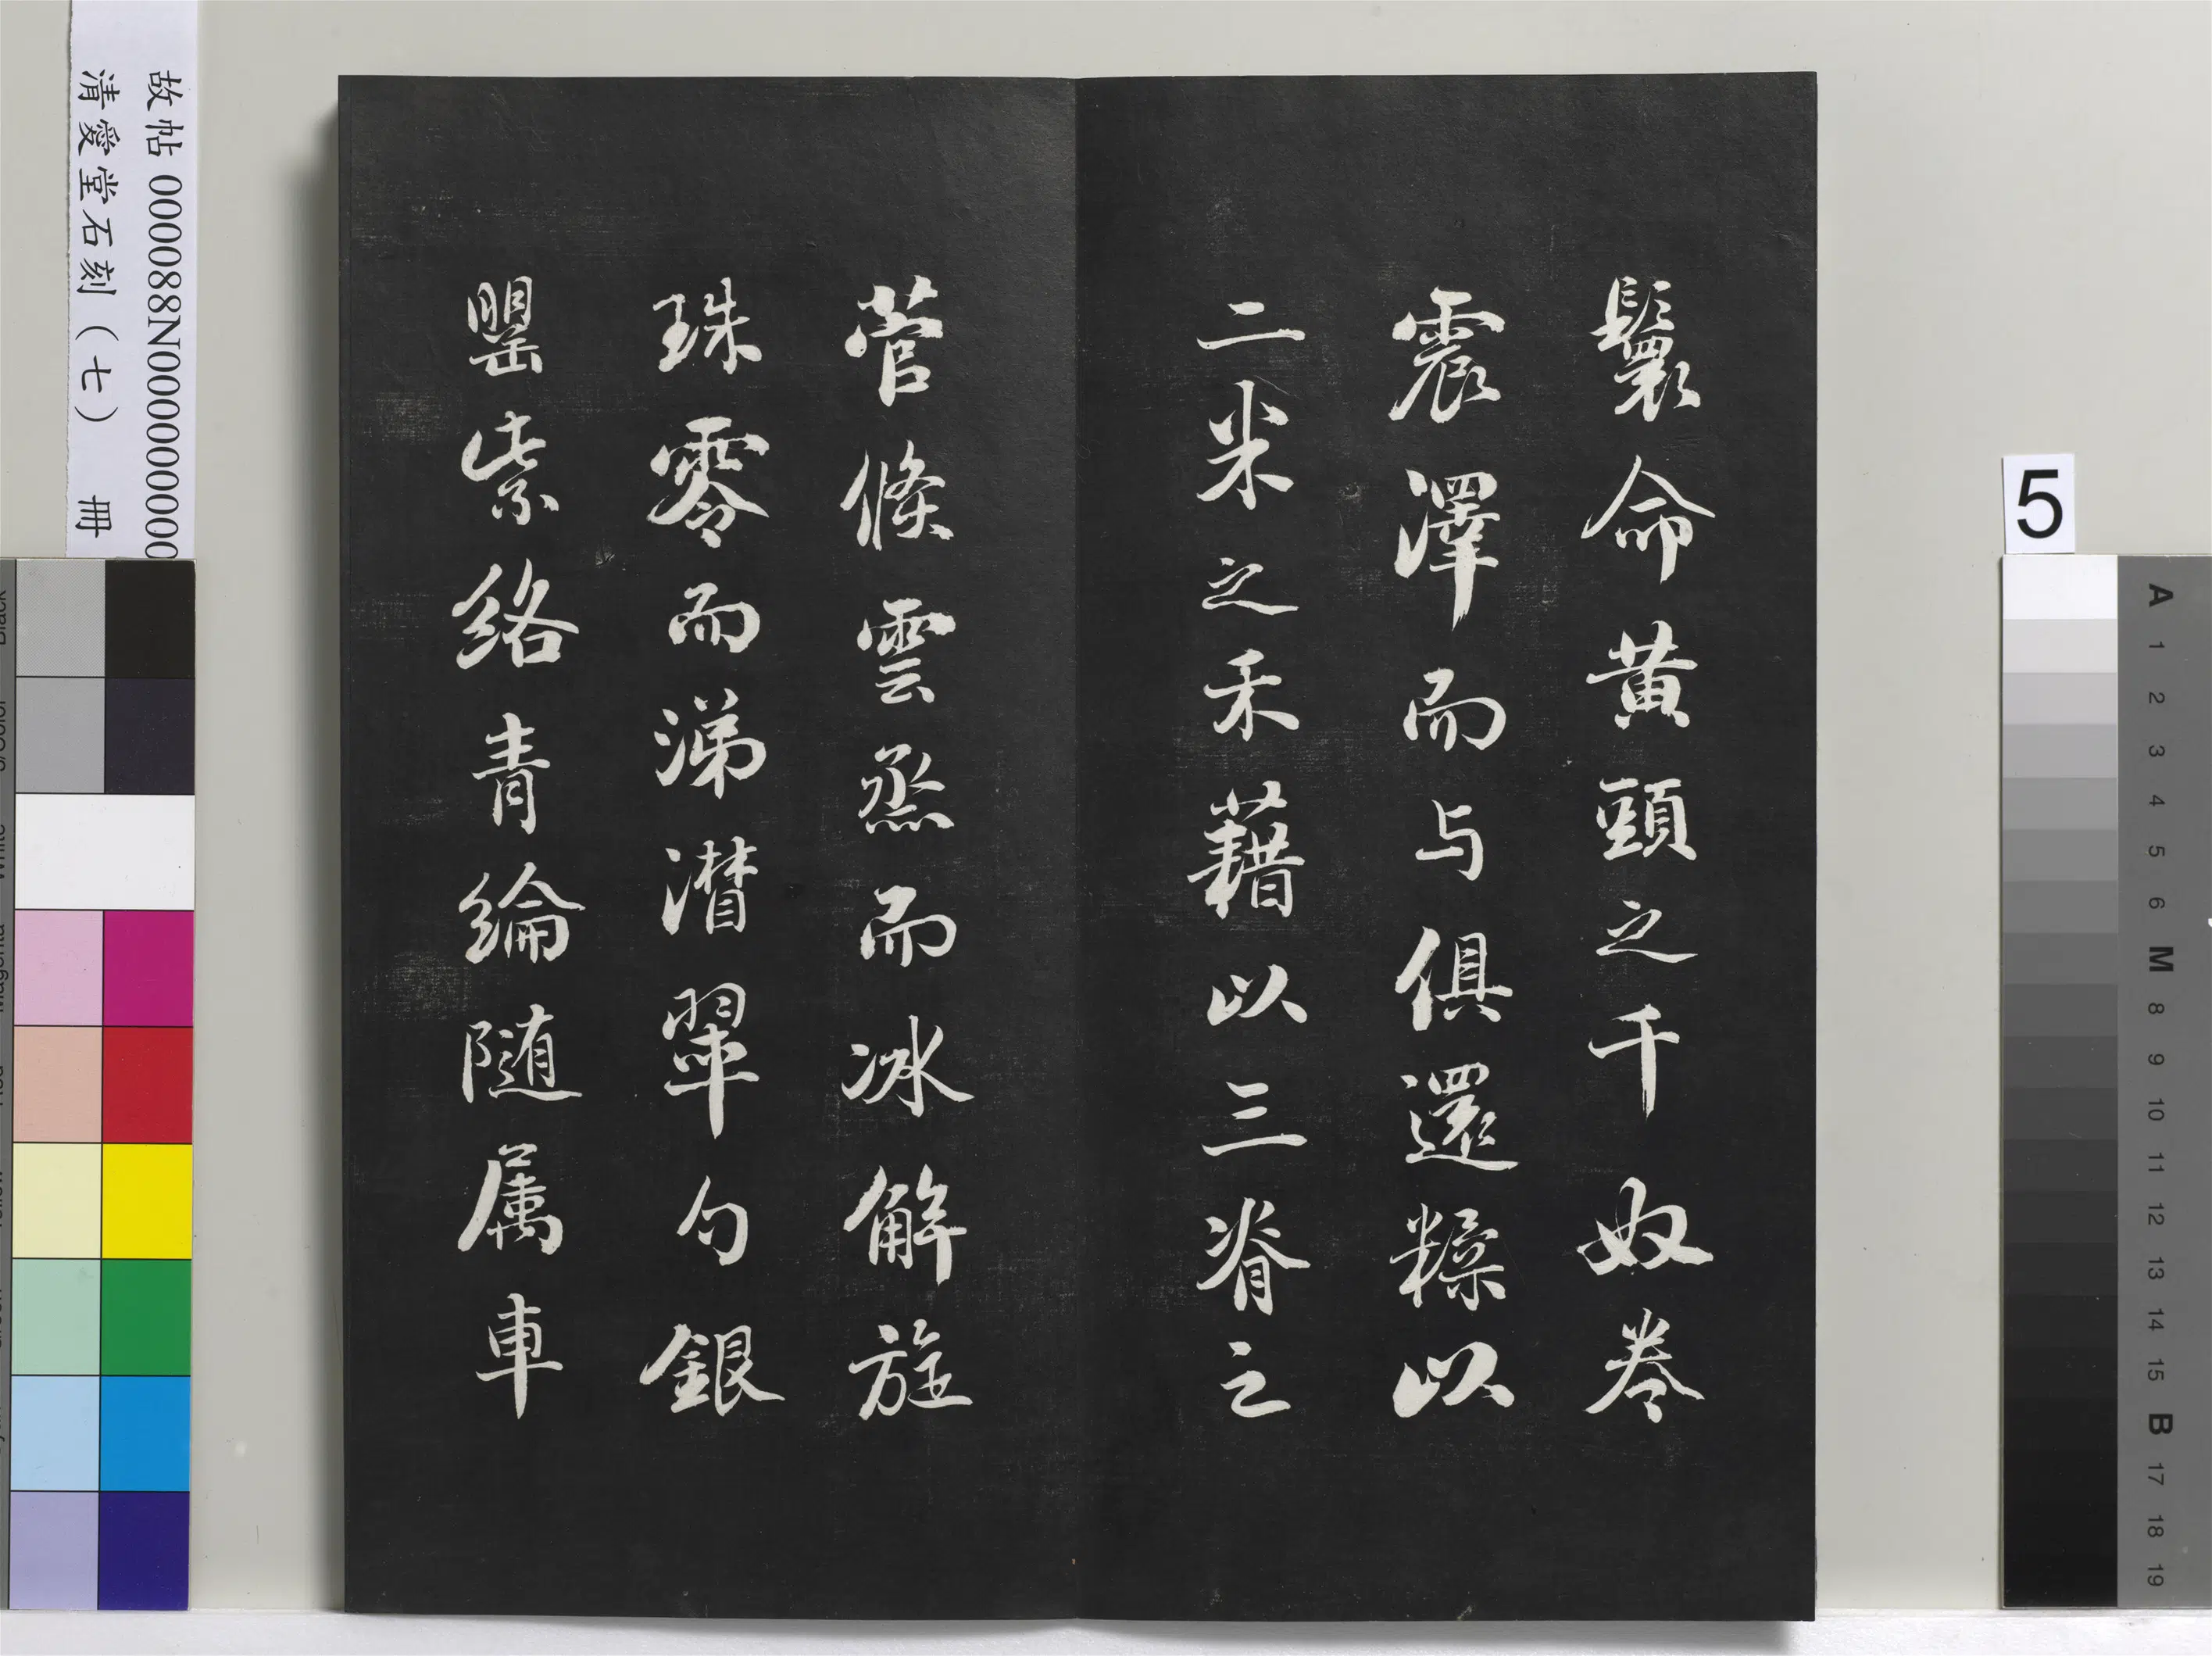 鬟命黄頭之千奴卷
震澤而与俱還糅以
二米之禾藉以三脊之
菅倏雲烝而冰解旋
珠零而涕潸翠勺銀
罌紫絡青綸随属車
故帖 000088N000000000
清愛堂石刻（七） 冊
5
A 1 2 3 4 5 6 M 8 9 10 11 12 13 14 15 B 17 18 19